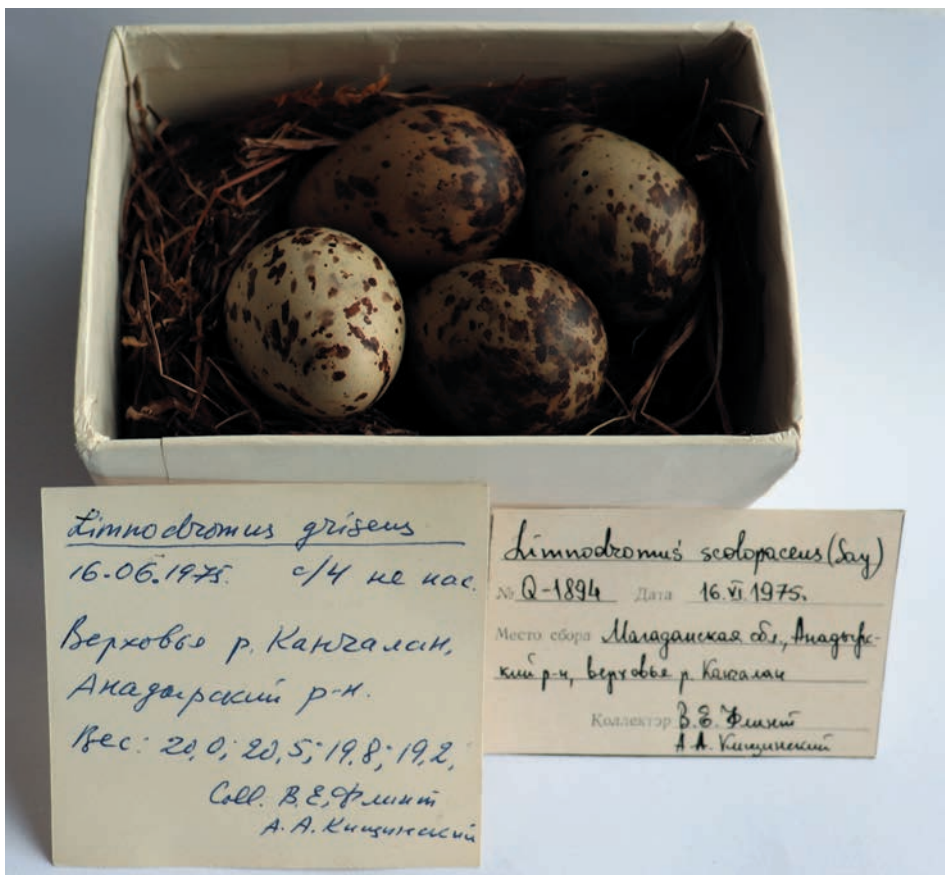 Limnodromus griseus
16.06.1975. c/4 не нас.
Верховье р. Канчалан,
Анадырский р-н.
Вес: 20,0; 20,5; 19,8; 19,2;
Coll. В.Е. Флинт
А.А. Кищинский
Limnodromus scolopaceus (Say)
№ Q-1894 Дата 16.VI.1975.
Место сбора Магаданская обл., Анадырс-
кий р-н, верховье р. Канчалан
Коллектор В.Е. Флинт
А.А. Кищинский